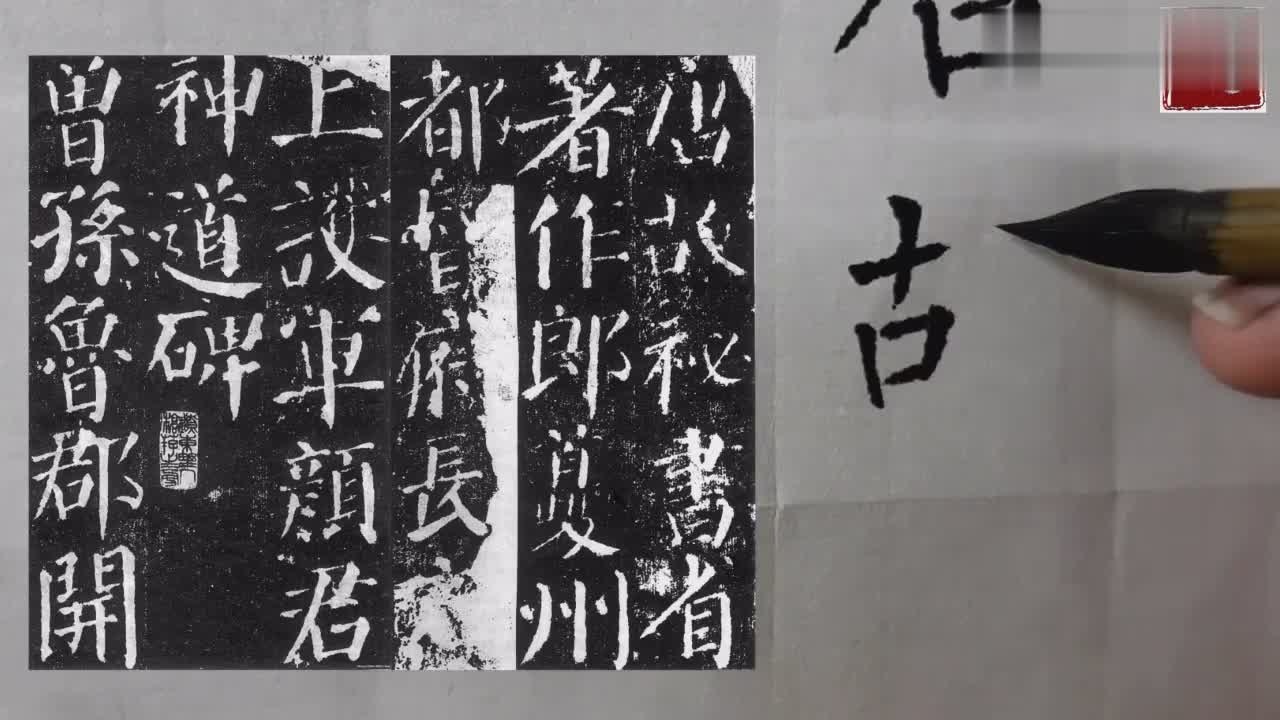 唐故祕書省
著作郎夔州
都督府長
上護軍顏君
神道碑
曾孫魯郡開
古